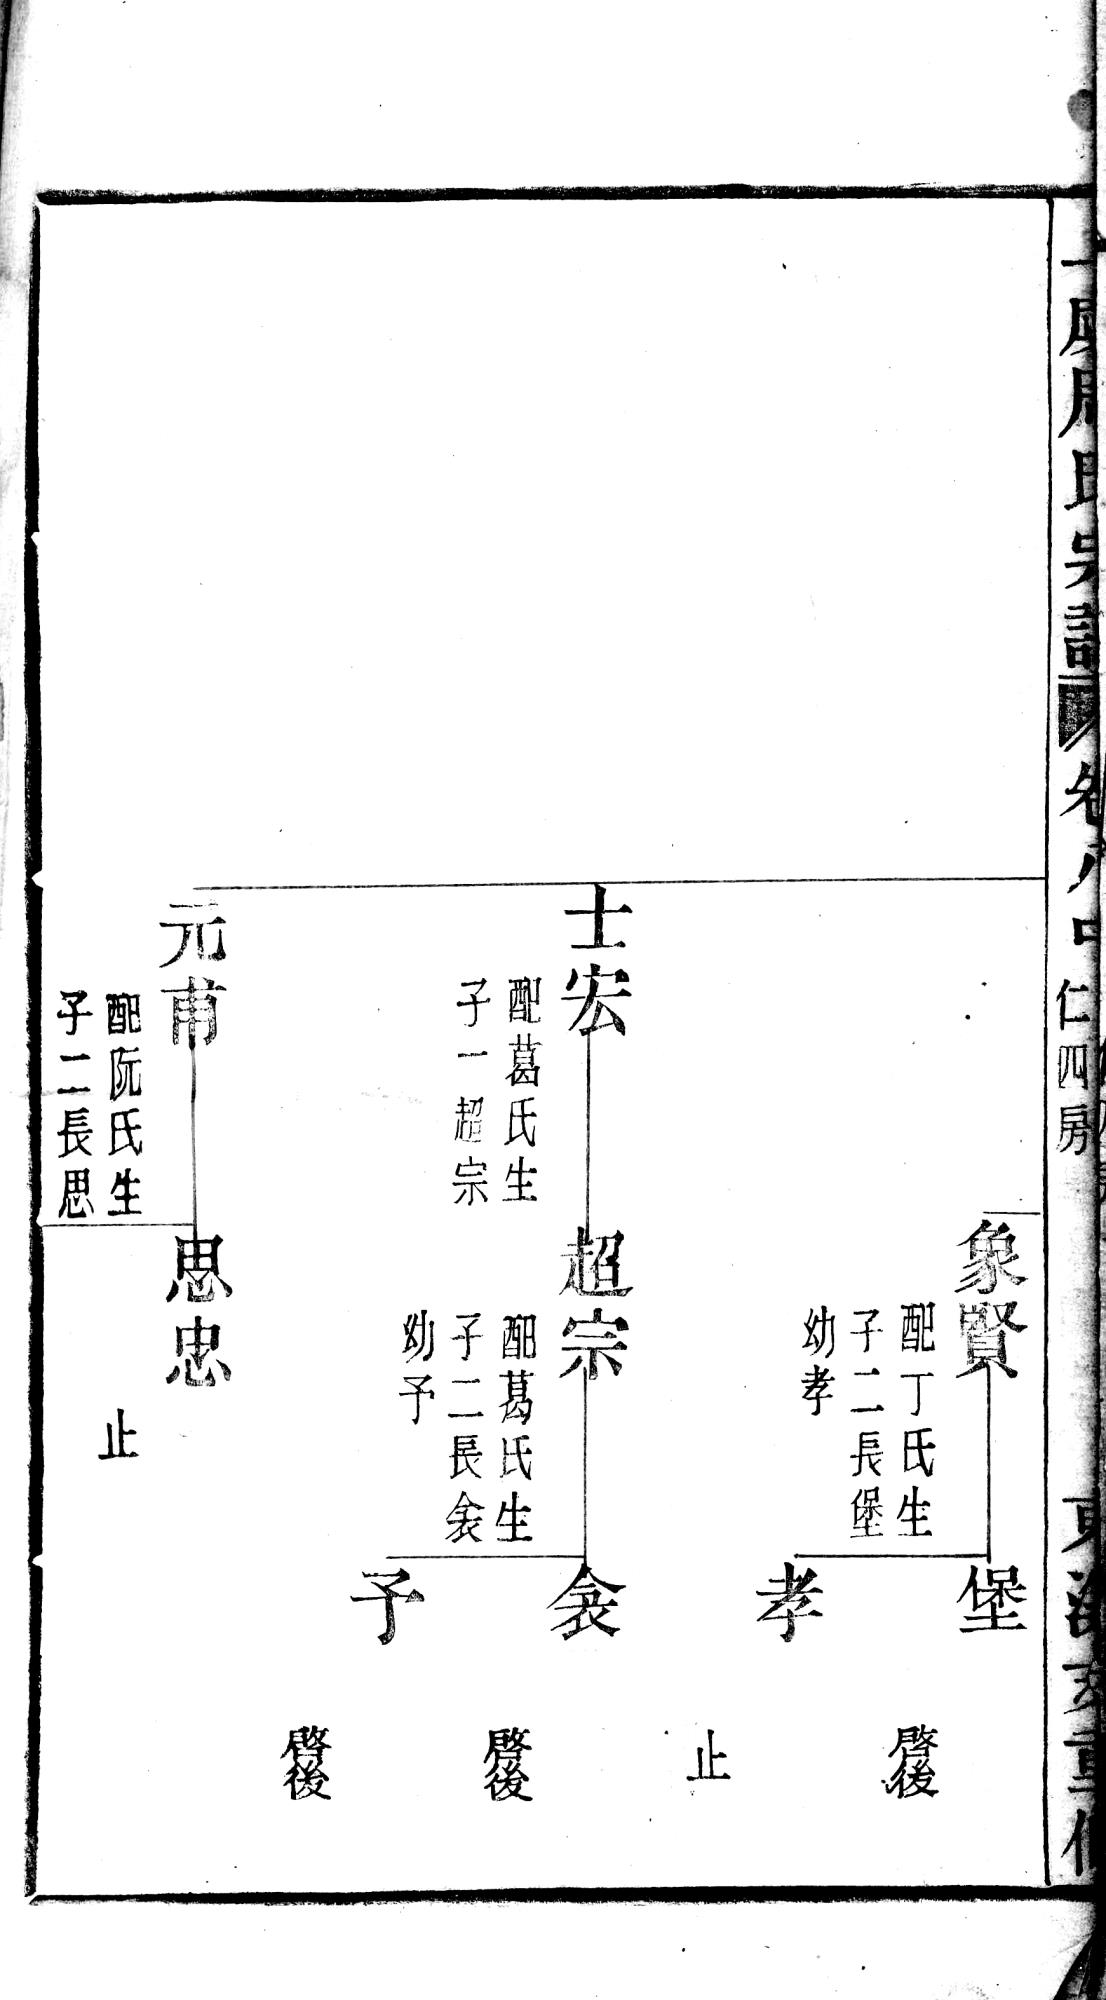 周氏宗譜
卷八中
仁四房
重修
象賢
配丁氏生
子二長堡
幼孝
堡
啓後
孝
止
士宏
配葛氏生
子一超宗
超宗
配葛氏生
子二長衾
幼予
衾
啓後
予
啓後
元甫
配阮氏生
子二長思
思忠
止